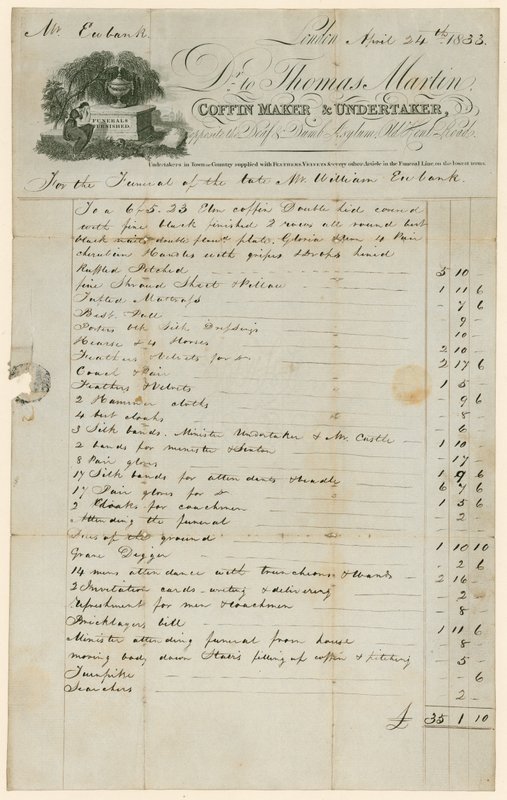 Mr. Eubank
London April 24th 1833.
Dr. to Thomas Martin,
COFFIN MAKER & UNDERTAKER,
opposite the Deaf & Dumb Asylum, Old Kent Road.
FUNERALS
FURNISHED.
Undertakers in Town or Country supplied with FEATHERS VELVETS & every other Article in the Funeral Line, on the lowest terms.
For the Funeral of the late Mr. William Eubank.
To a 6/5 - 23 Elm coffin Double lid coverd
with fine black finished 2 rows all round best
black double plate. Gloria & Urn 4 Pair
cherubim Handles with gripes & Drops lined
Ruffled Pitched 5 10 -
fine Shroud Sheet & Pillow 1 11 6
Tufted Mattrass - 7 6
Best Pall - 9 -
Porters with Silk Dressings - 10 -
Hearse & 4 Horses 2 10 -
Feathers & Velvets for Do 2 17 6
Coach & Pair 1 5 -
Feathers & Velvets - 9 6
2 Hammer cloths - 8 -
4 best cloaks - 6 -
3 Silk bands. Minister Undertaker & Mr. Castle 1 10 -
2 bands for minister & Sexton - 17 -
8 Pair gloves
17 Silk bands for attendants & beadle 6 7 6
17 Pair gloves for Do 1 5 6
2 Cloaks for coachmen - 2 -
Attending the funeral
Dues of the ground 1 10 10
Grave Digger - 2 6
14 mens attendance with truncheons & wands 2 16 -
2 Invitation cards - writing & delivering - 2 -
Refreshment for men & coachmen - 8 -
Bricklayers bill 1 11 6
Minister attending funeral from house - 8 -
moving body down Stairs filling up coffin & pitching - 5 -
Turnpike - 6
Searchers - 2 -
£ 35 1 10